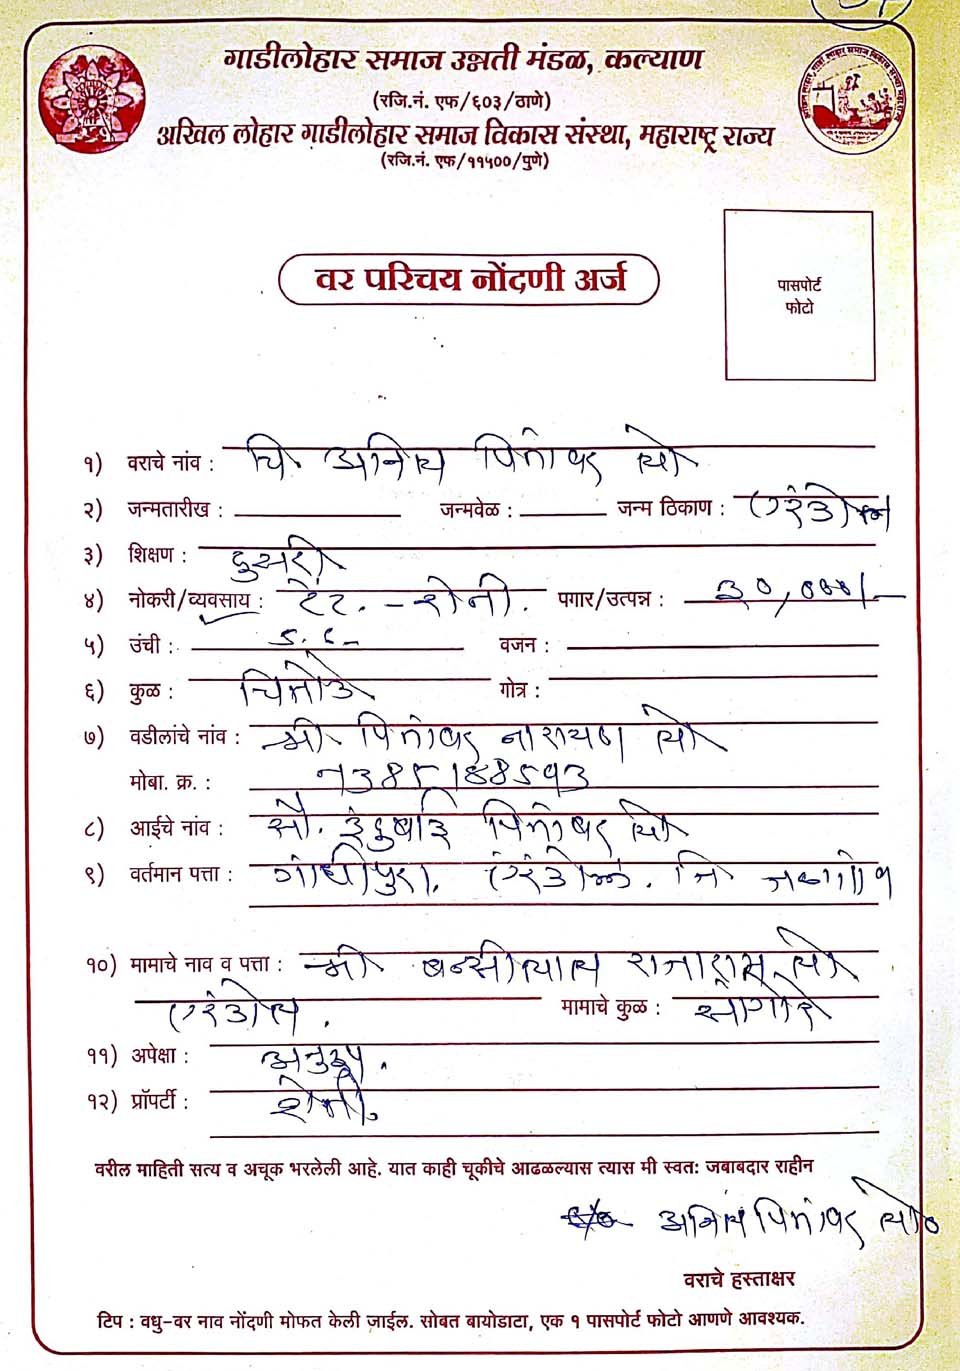 गाडीलोहार समाज उन्नती मंडळ, कल्याण
(रजि.नं. एफ/६०३/ठाणे)
अखिल लोहार गाडीलोहार समाज विकास संस्था, महाराष्ट्र राज्य
(रजि.नं. एफ/११५००/पुणे)
वर परिचय नोंदणी अर्ज
पासपोर्ट
फोटो
१) वराचे नांव : चि. अनिल पितांबर लो
२) जन्मतारीख : जन्मवेळ : जन्म ठिकाण : एरंडोल
३) शिक्षण : दुसरी
४) नोकरी/व्यवसाय : शेती. पगार/उत्पन्न : ३०,०००/-
५) उंची : ५.६ वजन :
६) कुळ : गोत्र :
७) वडीलांचे नांव : श्री पितांबर नारायण लो
मोबा. क्र. :
८) आईचे नांव : सौ. इंदुबाई पितांबर लो
९) वर्तमान पत्ता : गांधीपुरा. एरंडोल. जि जळगांव
१०) मामाचे नाव व पत्ता : श्री बन्सीलाल राजाराम लो
एरंडोल. मामाचे कुळ :
११) अपेक्षा : अनुरूप.
१२) प्रॉपर्टी : शेती.
वरील माहिती सत्य व अचूक भरलेली आहे. यात काही चूकीचे आढळल्यास त्यास मी स्वतः जबाबदार राहीन
अनिल पितांबर लो
वराचे हस्ताक्षर
टिप : वधु-वर नाव नोंदणी मोफत केली जाईल. सोबत बायोडाटा, एक १ पासपोर्ट फोटो आणणे आवश्यक.